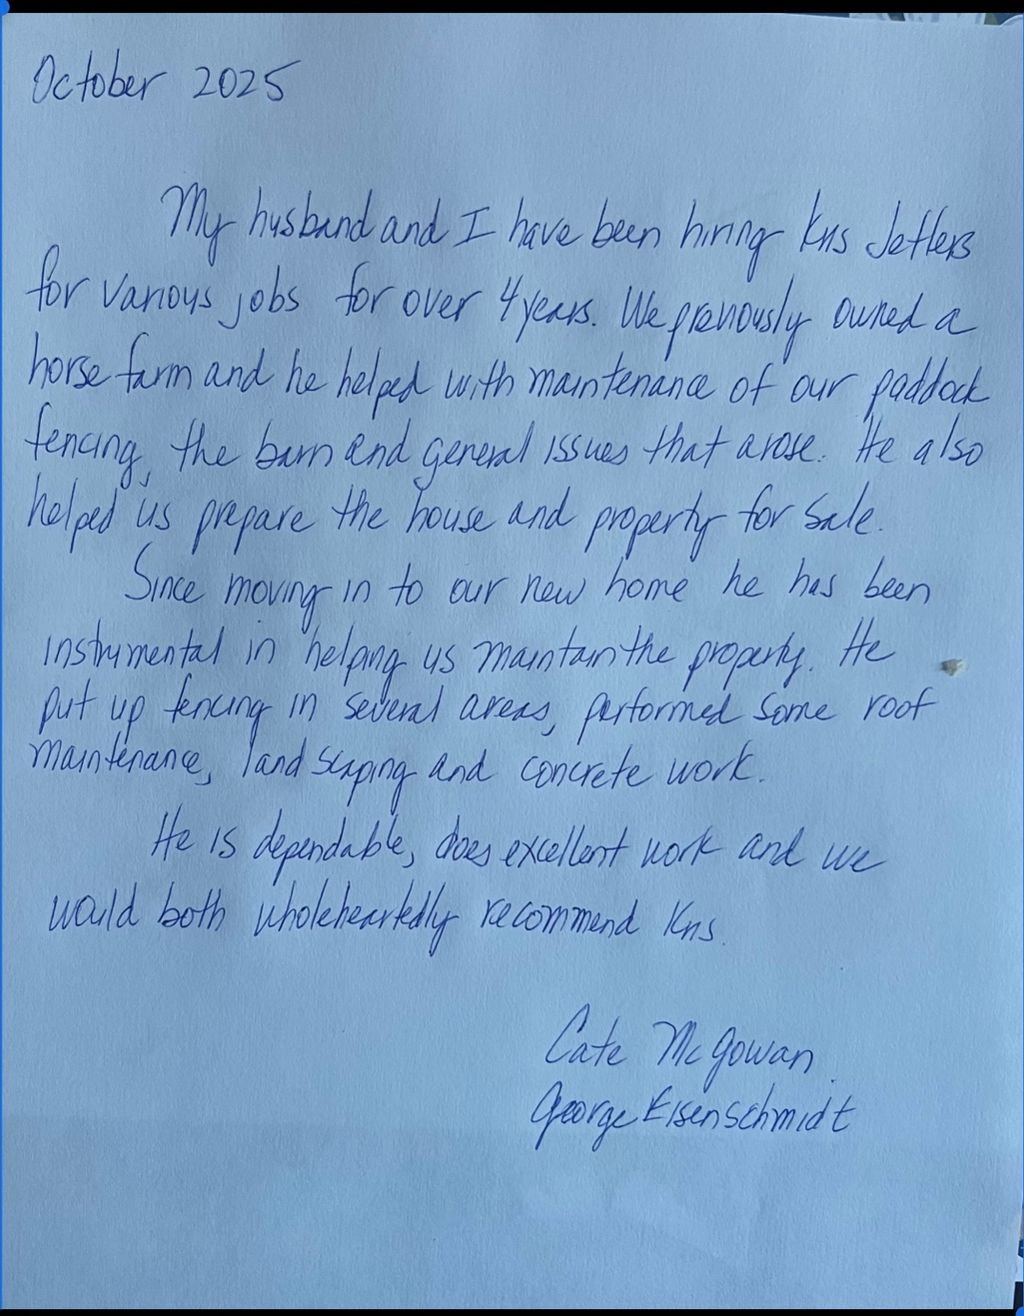 October 2025
My husband and I have been hiring Kris Jetters
for various jobs for over 4 years. We previously owned a
horse farm and he helped with maintenance of our paddock
fencing, the barn and general issues that arose. He also
helped us prepare the house and property for sale.
Since moving in to our new home he has been
instrumental in helping us maintain the property. He
put up fencing in several areas, performed some roof
maintenance, landscaping and concrete work.
He is dependable, does excellent work and we
would both wholeheartedly recommend Kris.
Cate McGowan
George Eisenschmidt